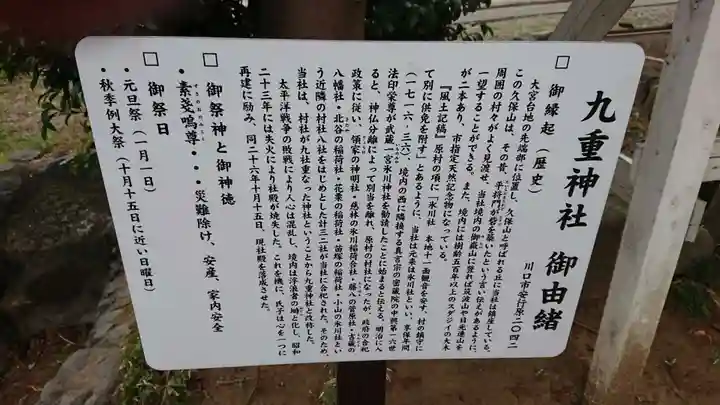 九重神社 御由緒
川口市安行原二〇四二
□ 御縁起（歴史）
大宮台地の先端部に位置し、久保山と呼ばれる丘に当社は鎮座している。
この久保山は、その昔、平将門が砦を築いたという言い伝えがあるように、
周囲の村々がよく見渡せ、当社境内の御嶽山に登れば筑波山や日光連山を
一望することができる。また、境内には樹齢五百年以上のスダジイの大木
が二本あり、市指定天然記念物になっている。
『風土記稿』原村の項に「氷川社 本地十一面観音を安す、村の鎮守に
て別に供免を附す」とあるように、当社は元来は氷川社といい、享保年間
（一七一六、三六）、境内の西に隣接する真言宗の密蔵院の中興第一六世
法印栄尊が武蔵一宮氷川神社を勧請したことに始まると伝える。明治に入
ると、神仏分離によって別当を離れ、原村の村社になったが、政府の合祀
政策に従い、領家の神明社・慈林の氷川稲荷合社・藤八の菅原社・吉蔵の
八幡社・北谷の稲荷社・花栗の稲荷社・苗塚の稲荷社・小山の氷川社とい
う近隣の村社八社をはじめとした計三二社が当社に合祀された。そのため、
当社は、村社が九社重なった神社ということから九重神社と改称した。
太平洋戦争の敗戦により人心は混乱し、境内は浮浪者の場と化し、昭和
二十三年には失火により社殿が焼失した。これを機に、氏子は心を一つに
再建に励み、同二十六年十月十五日、現社殿を落成させた。
□ 御祭神と御神徳
・素戔嗚尊・・・災難除け、安産、家内安全
□ 御祭日
・元旦祭（一月一日）
・秋季例大祭（十月十五日に近い日曜日）